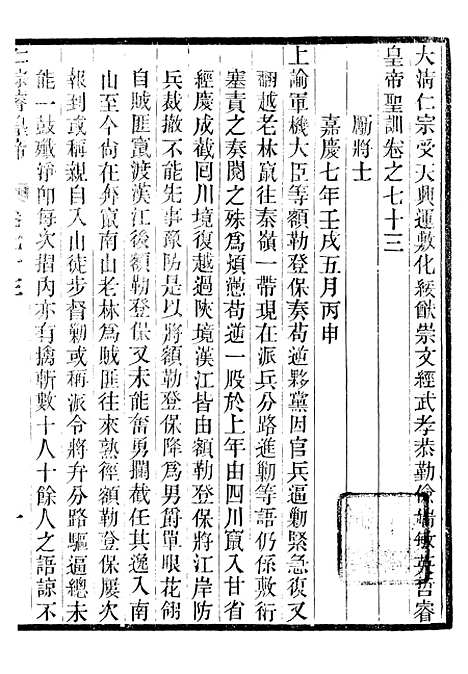 大清仁宗受天興運敷化綏猷崇文經武孝恭勤儉端敏英哲睿
皇帝聖訓卷之七十三
勵將士
嘉慶七年壬戌五月丙申
上諭軍機大臣等額勒登保奏苟逆夥黨因官兵逼勦緊急復又
翻越老林竄往秦嶺一帶現在派兵分路進勦等語仍係敷衍
塞責之奏閱之殊為煩懣苟逆一股於上年由四川竄入甘省
經慶成截回川境復越過陝境漢江皆由額勒登保將江岸防
兵裁撤不能先事豫防是以將額勒登保降為男爵單眼花翎
自賊匪竄渡漢江後額勒登保又未能奮勇攔截任其逸入南
山至今尙在奔竄南山老林為賊匪往來熟徑額勒登保屢次
報到竟稱親自入山徒步督勦或稱派令將弁分路驅逼總未
能一鼓殲淨卽每次摺內亦有擒斬數十人十餘人之語諒不
仁宗睿皇帝 卷七十三 一